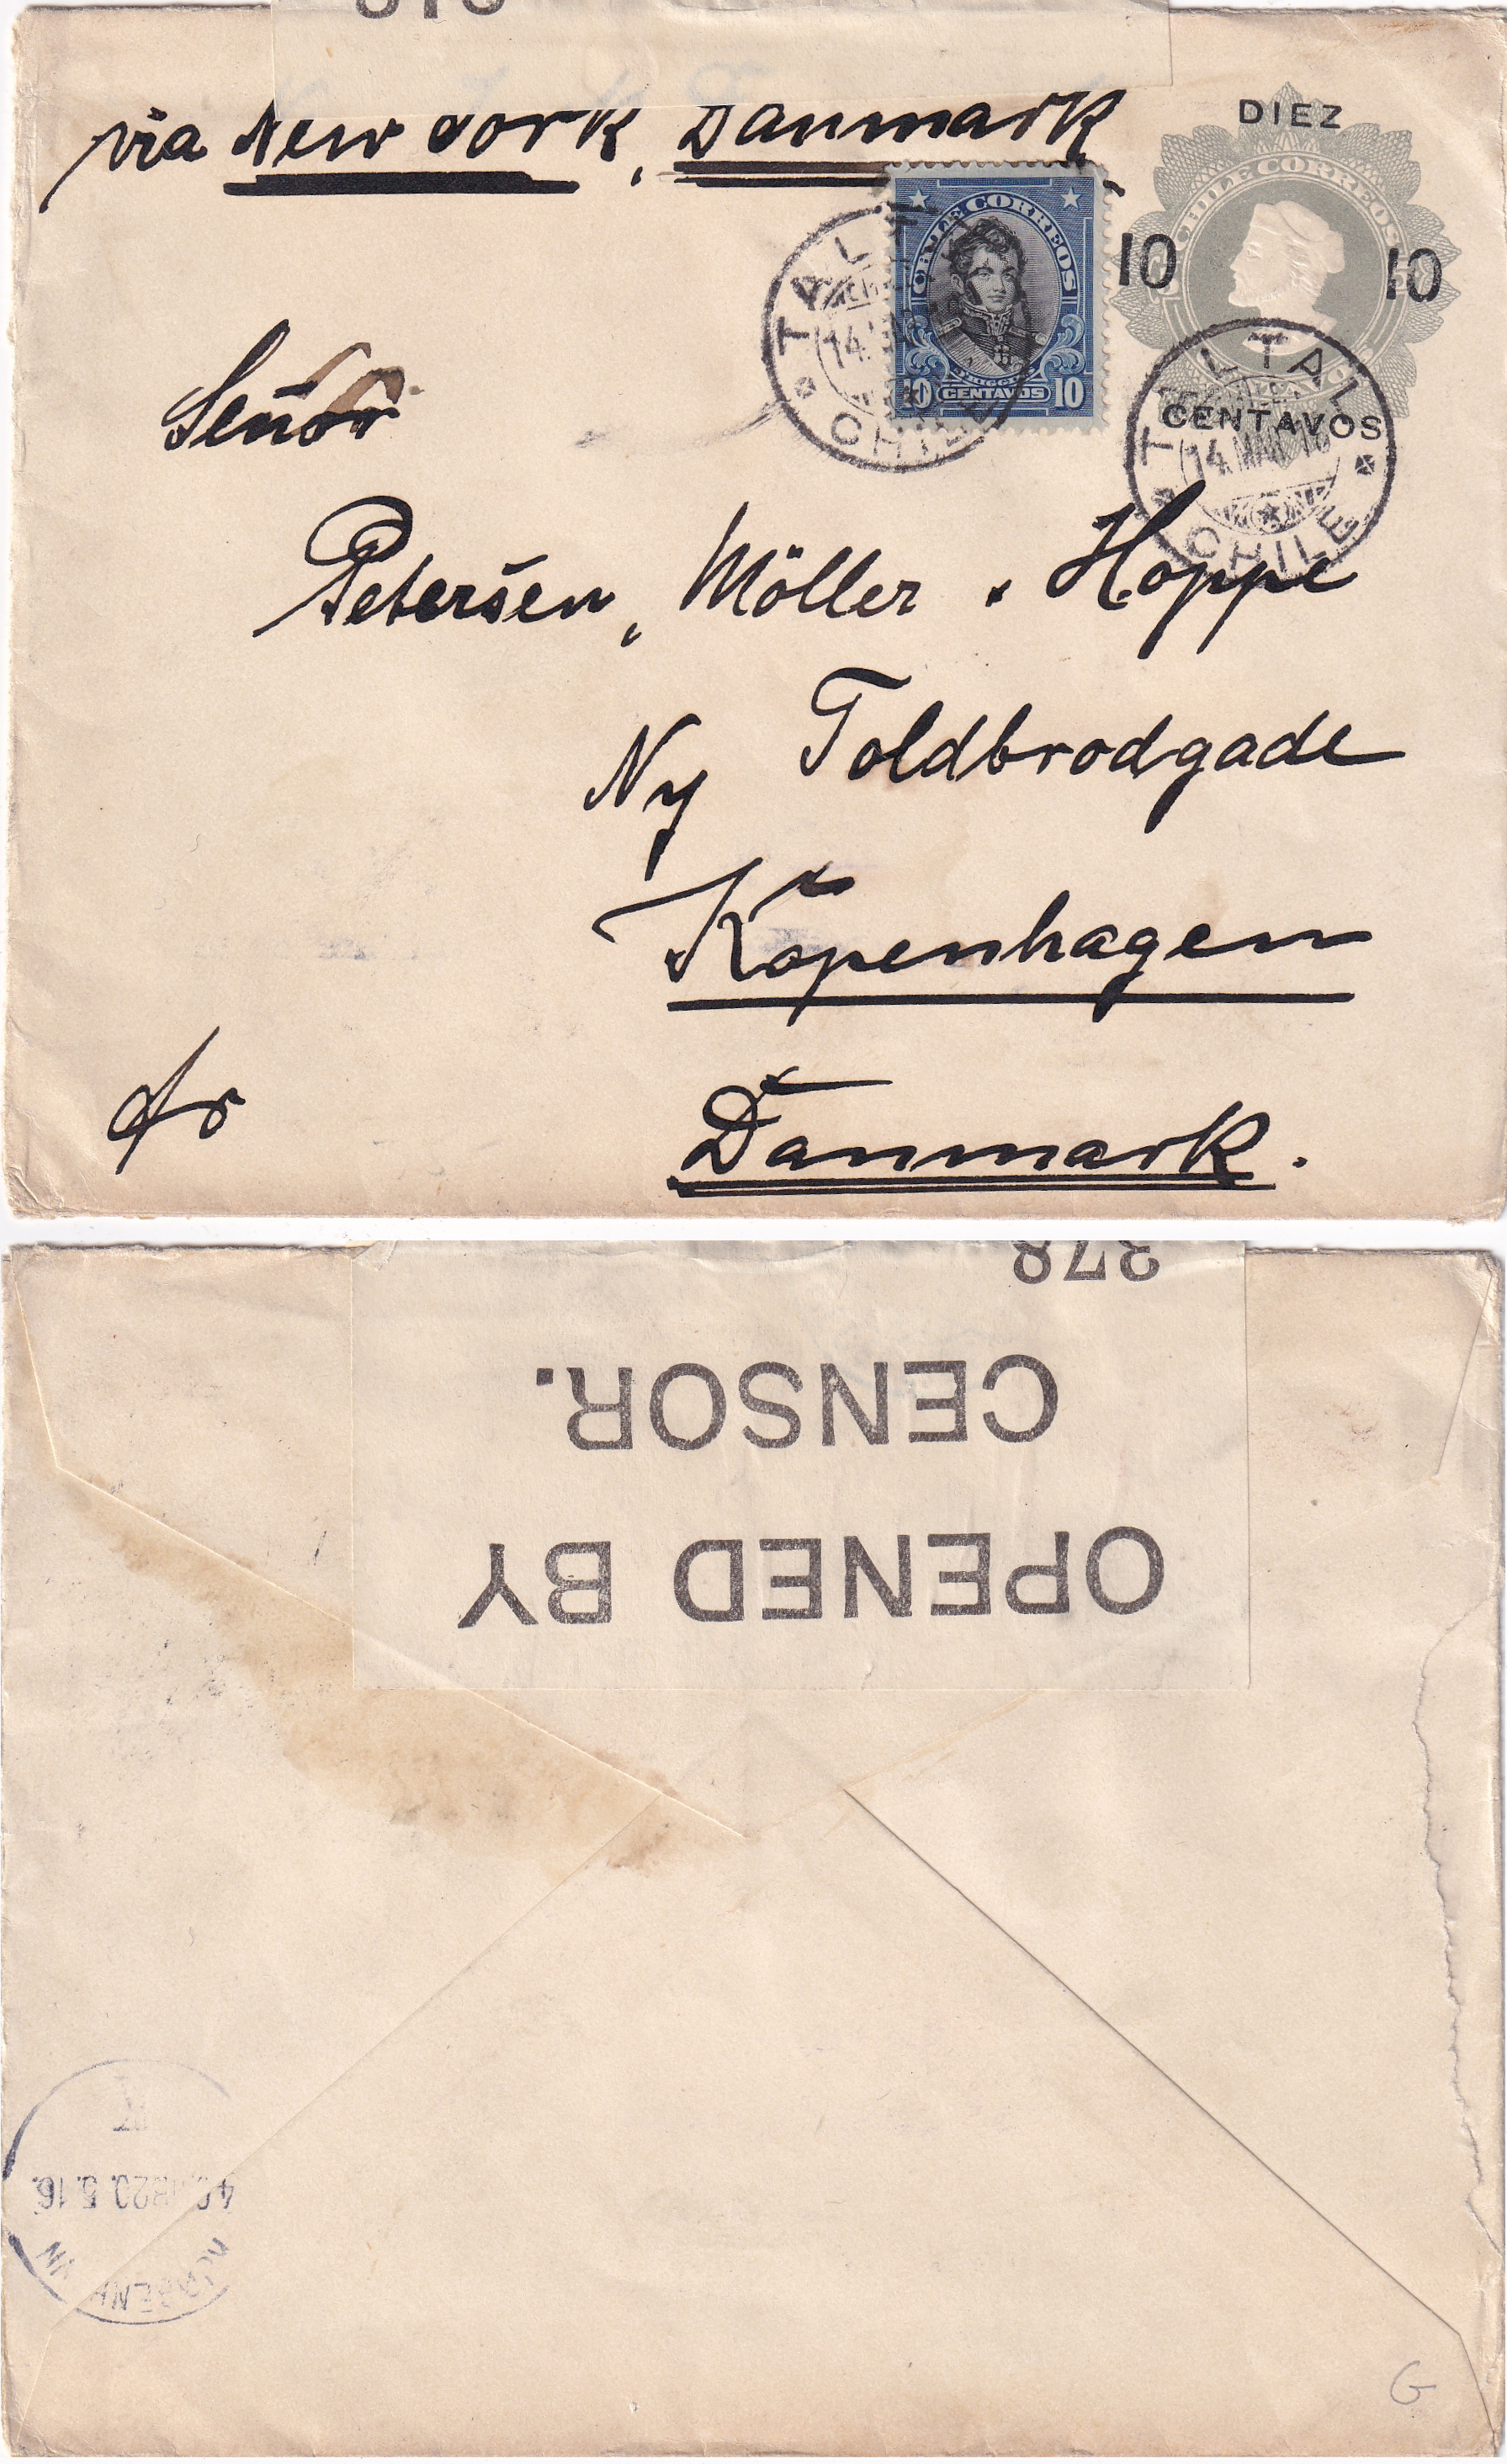 via New York, Danmark
DIEZ
CHILE CORREOS
10 10
CENTAVOS
CHILE CORREOS
10 CENTAVOS 10
TALTAL
14
CHILE
TALTAL
14 MAR 16
CHILE
Señor
Petersen, Möller . Hoppe
Ny Toldbrodgade
Kopenhagen
Danmark.
378
CENSOR.
OPENED BY
K
20.5.16.
KJØBENHAVN
G